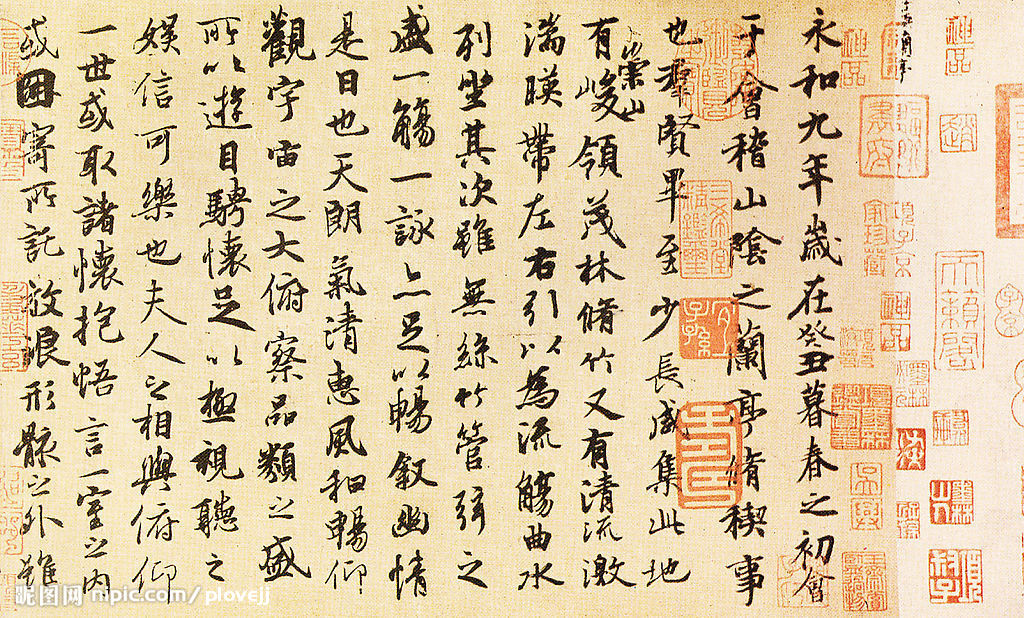 永和九年歲在癸丑暮春之初會
于會稽山陰之蘭亭脩稧事
也羣賢畢至少長咸集此地
有崇山峻領茂林脩竹又有清流激
湍暎帶左右引以為流觴曲水
列坐其次雖無絲竹管弦之
盛一觴一詠亦足以暢叙幽情
是日也天朗氣清惠風和暢仰
觀宇宙之大俯察品類之盛
所以遊目騁懷足以極視聽之
娛信可樂也夫人之相與俯仰
一世或取諸懷抱悟言一室之內
或因寄所託放浪形骸之外雖
神品
昵图网 nipic.com/plovejj